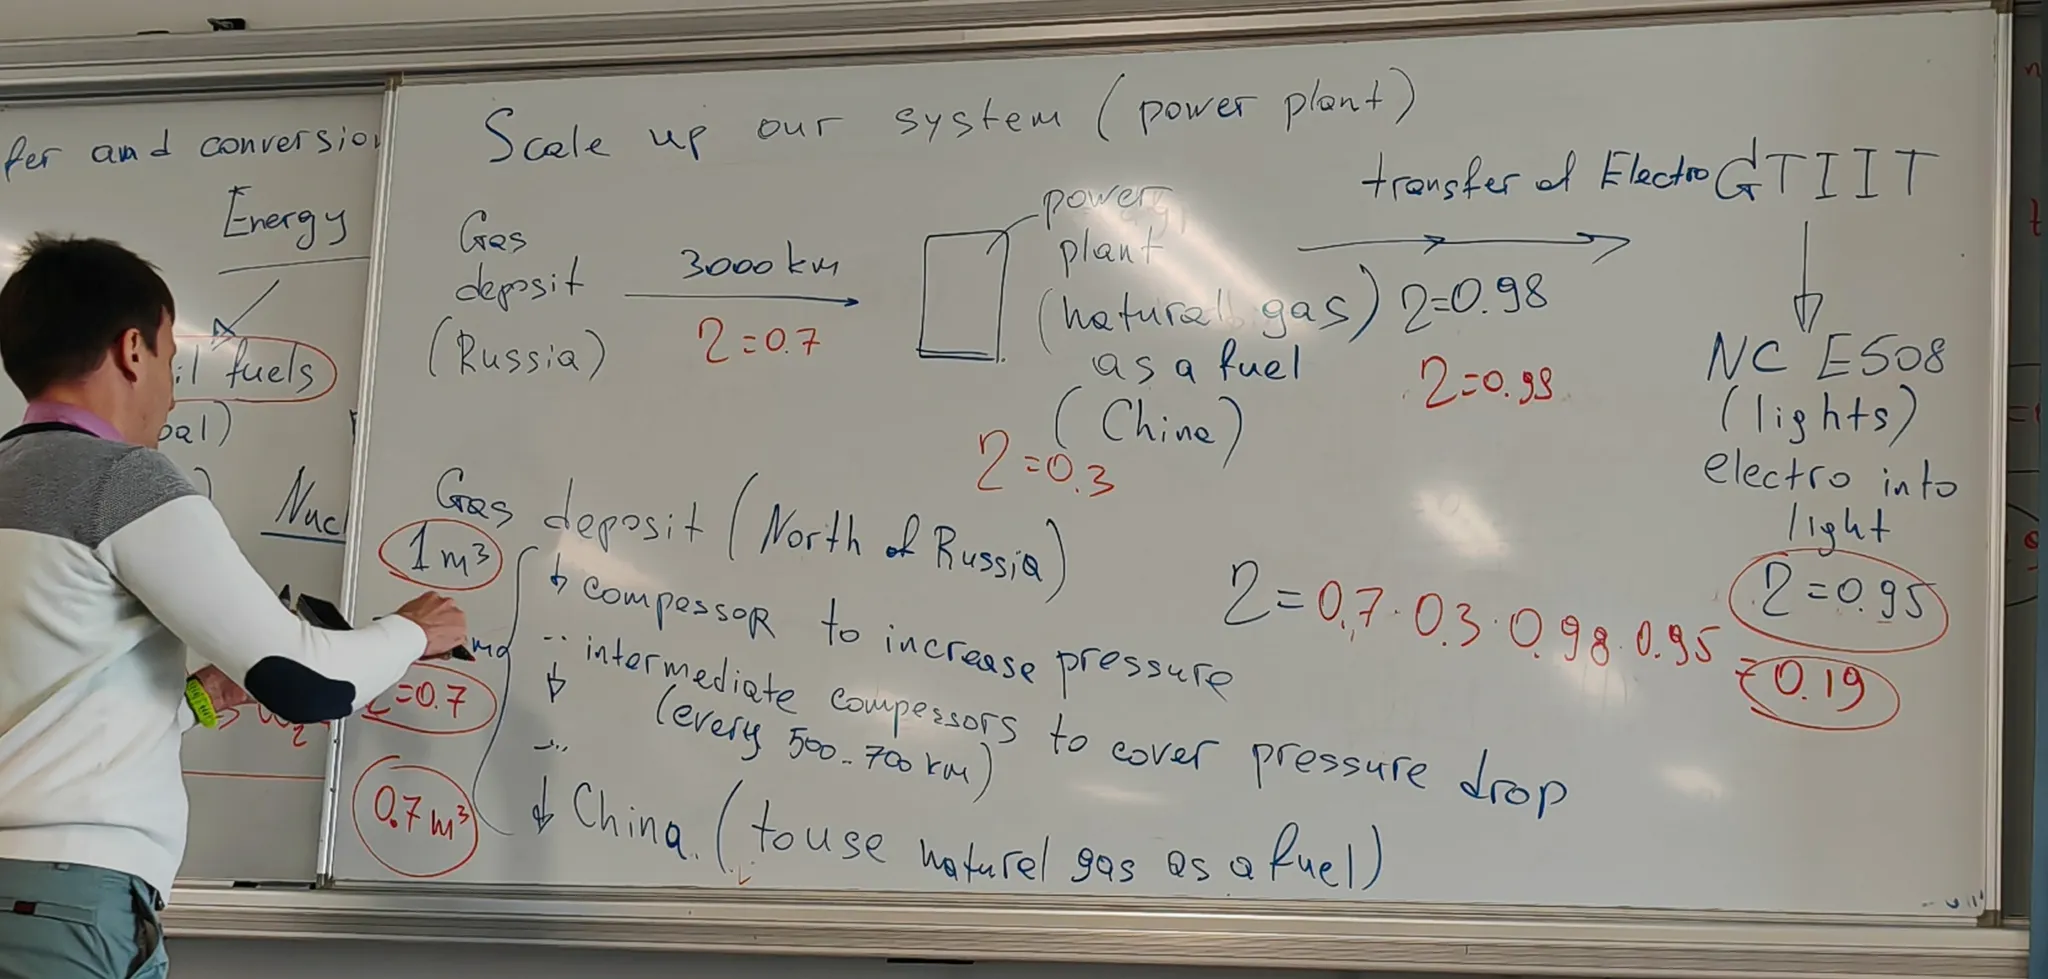 fer and conversion
Energy
fuels
oal)
Nucl
Scale up our system (power plant)
Gas
deposit
(Russia)
3000 km
η=0.7
power
plant
(natural gas)
as a fuel
(China)
η=0.3
transfer of Electro
η=0.98
η=0.98
GTIIT
NC E508
(lights)
electro into
light
η=0.95
Gas deposit (North of Russia)
1 m³
compessor to increase pressure
intermediate compessors to cover pressure drop
(every 500..700 km)
China. (to use naturel gas as a fuel)
=0.7
0.7 m³
η=0.7·0.3·0.98·0.95
=0.19